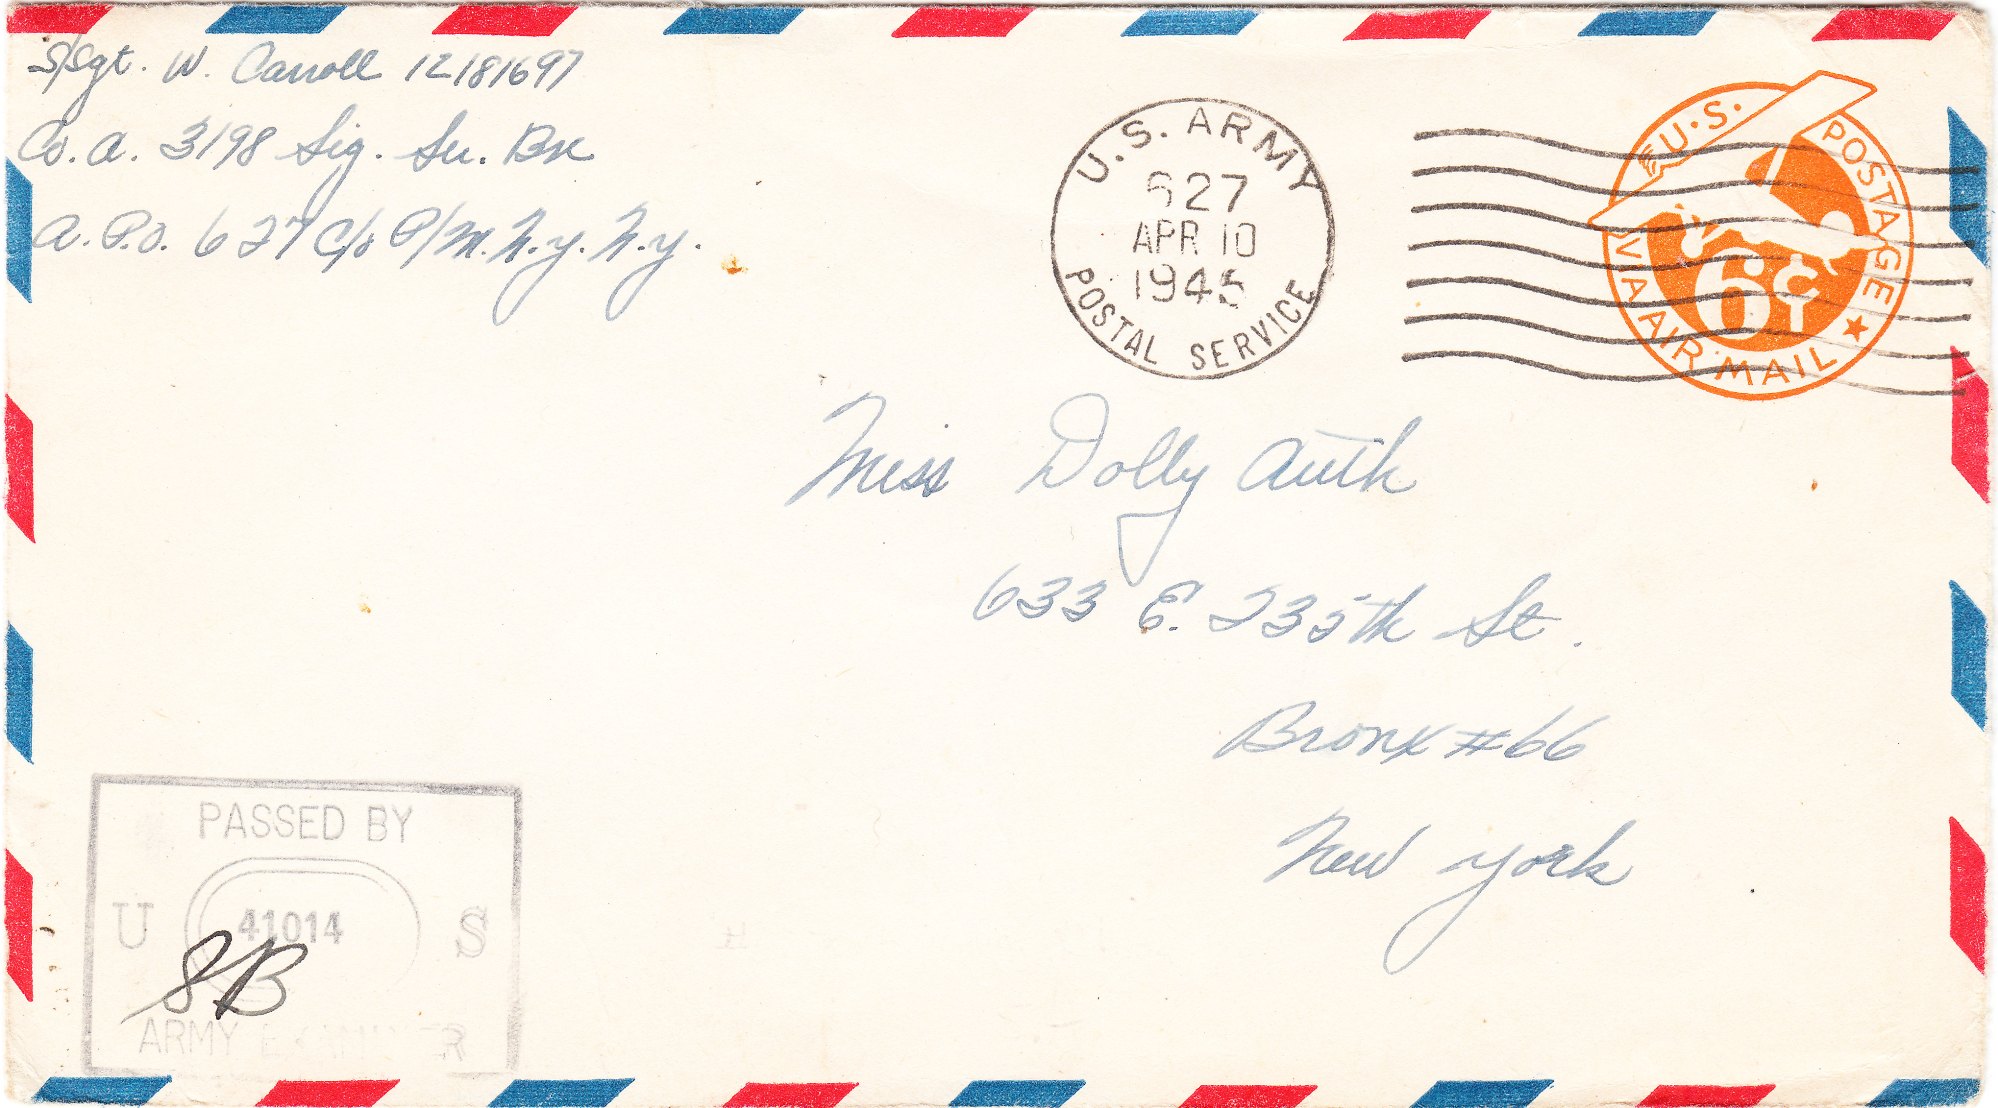 S/Sgt. W. Carroll 12181697
Co. A. 3198 Sig. Su. Bn
A.P.O. 627 C/o P/M. N.Y. N.Y.
U.S. ARMY
627
APR 10
1945
POSTAL SERVICE
U.S. POSTAGE
6¢
VIA AIR MAIL
Miss Dolly Auth
633 E. 235th St.
Bronx #66
New York
PASSED BY
U 41014 S
SB
ARMY EXAMINER